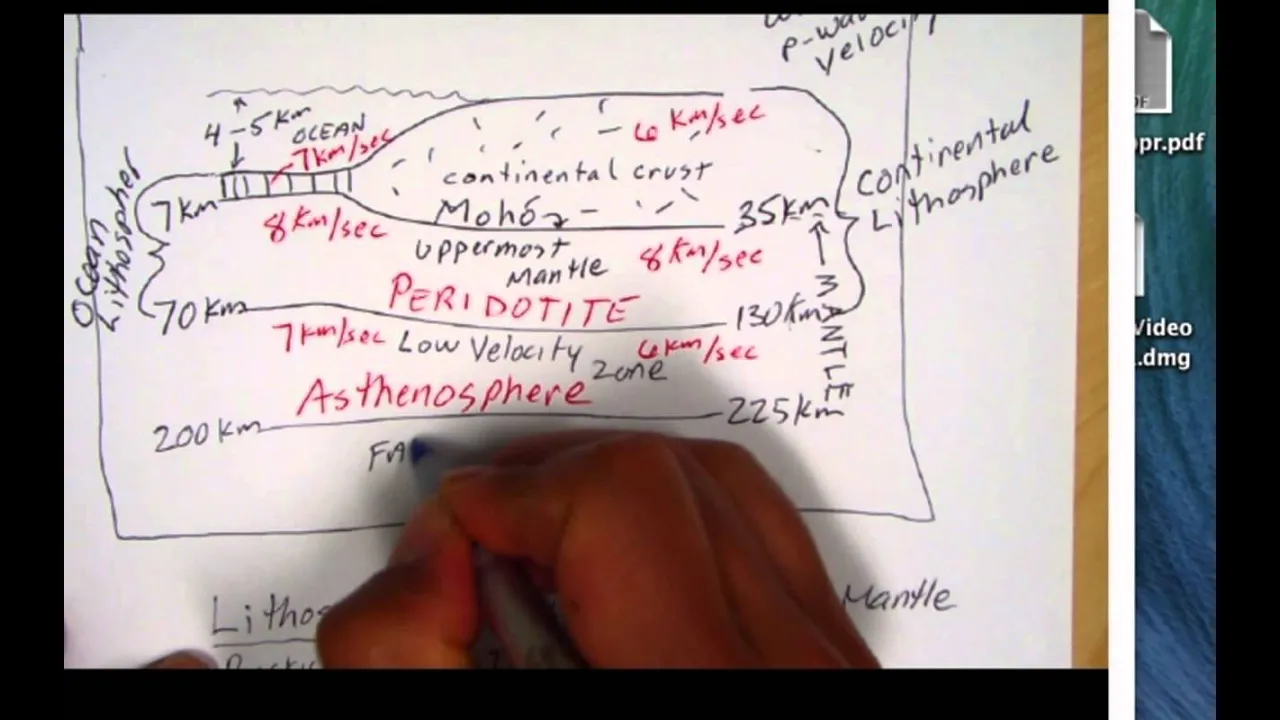 P-wa
Velocity
4-5km
OCEAN
7km/sec
6 km/sec
continental crust
Continental
Lithosphere
Ocean
Lithospher
7km
Moho
35km
8km/sec
uppermost
Mantle
8km/sec
PERIDOTITE
MANTLE
70km
130km
7km/sec
Low Velocity
Zone
6km/sec
Asthenosphere
200km
225km
Lithos
Mantle
ppr.pdf
Video
.dmg